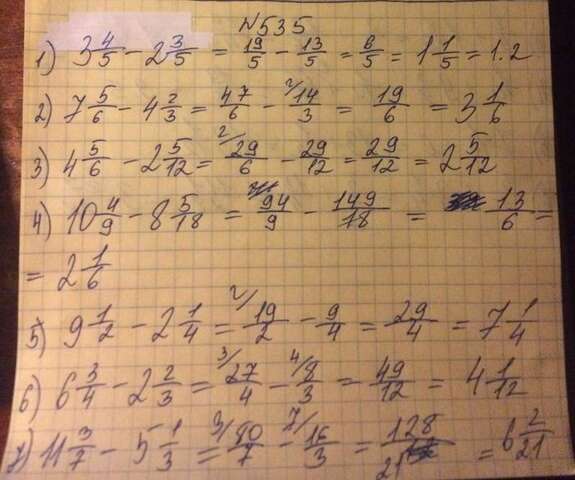 №535
1) 3 4/5 - 2 3/5 = 19/5 - 13/5 = 6/5 = 1 1/5 = 1.2
2) 7 5/6 - 4 2/3 = 47/6 - 2/ 14/3 = 19/6 = 3 1/6
3) 4 5/6 - 2 5/12 = 2/ 29/6 - 29/12 = 29/12 = 2 5/12
4) 10 4/9 - 8 5/18 = 94/9 - 149/18 = 13/6 =
= 2 1/6
5) 9 1/2 - 2 1/4 = 2/ 19/2 - 9/4 = 29/4 = 7 1/4
6) 6 3/4 - 2 2/3 = 3/ 27/4 - 4/ 8/3 = 49/12 = 4 1/12
7) 11 3/7 - 5 1/3 = 3/ 80/7 - 7/ 16/3 = 128/21 = 6 2/21